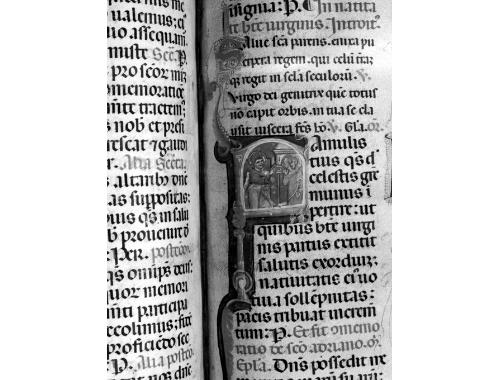 ualemus: et
uo assequam̄
miste Sec̄. P.
pro scōr m
memoratiōe
mite tractem
nob et prest
tescat z gaudi
Alia Secta.
altarib dn̄e
as suppositas:
uis qs in salu
b prouenire
Per. postcōm
qs om̄ps deus:
quor memori
participa
ecolimus: site
proficiēdo sec
P. Alia postcō
insignia: P. In natiuita
te btē uirginis. Introit.
alue sc̄a parens, enixa pu
erpera regem. qui celū trāz
qz regit in sc̄la seculorū. V.
Virgo dei genitrix quē totus
nō capit orbis. in tua se cla
usit uiscera fc̄s hō. V. Gl̄a. or̄.
Famulis
tuis qs d
celestis gre
munus i
pertire: ut
quibus btē uirgi
nis partus extitit
salutis exordiuz;
natiuitatis eiuo
tiua sollēpnitas:
pacis tribuat increm̄
tum: P. Et fit cōmemo
ratio de scō adriano. or̄.
Ep̄la. Dn̄s possedit me